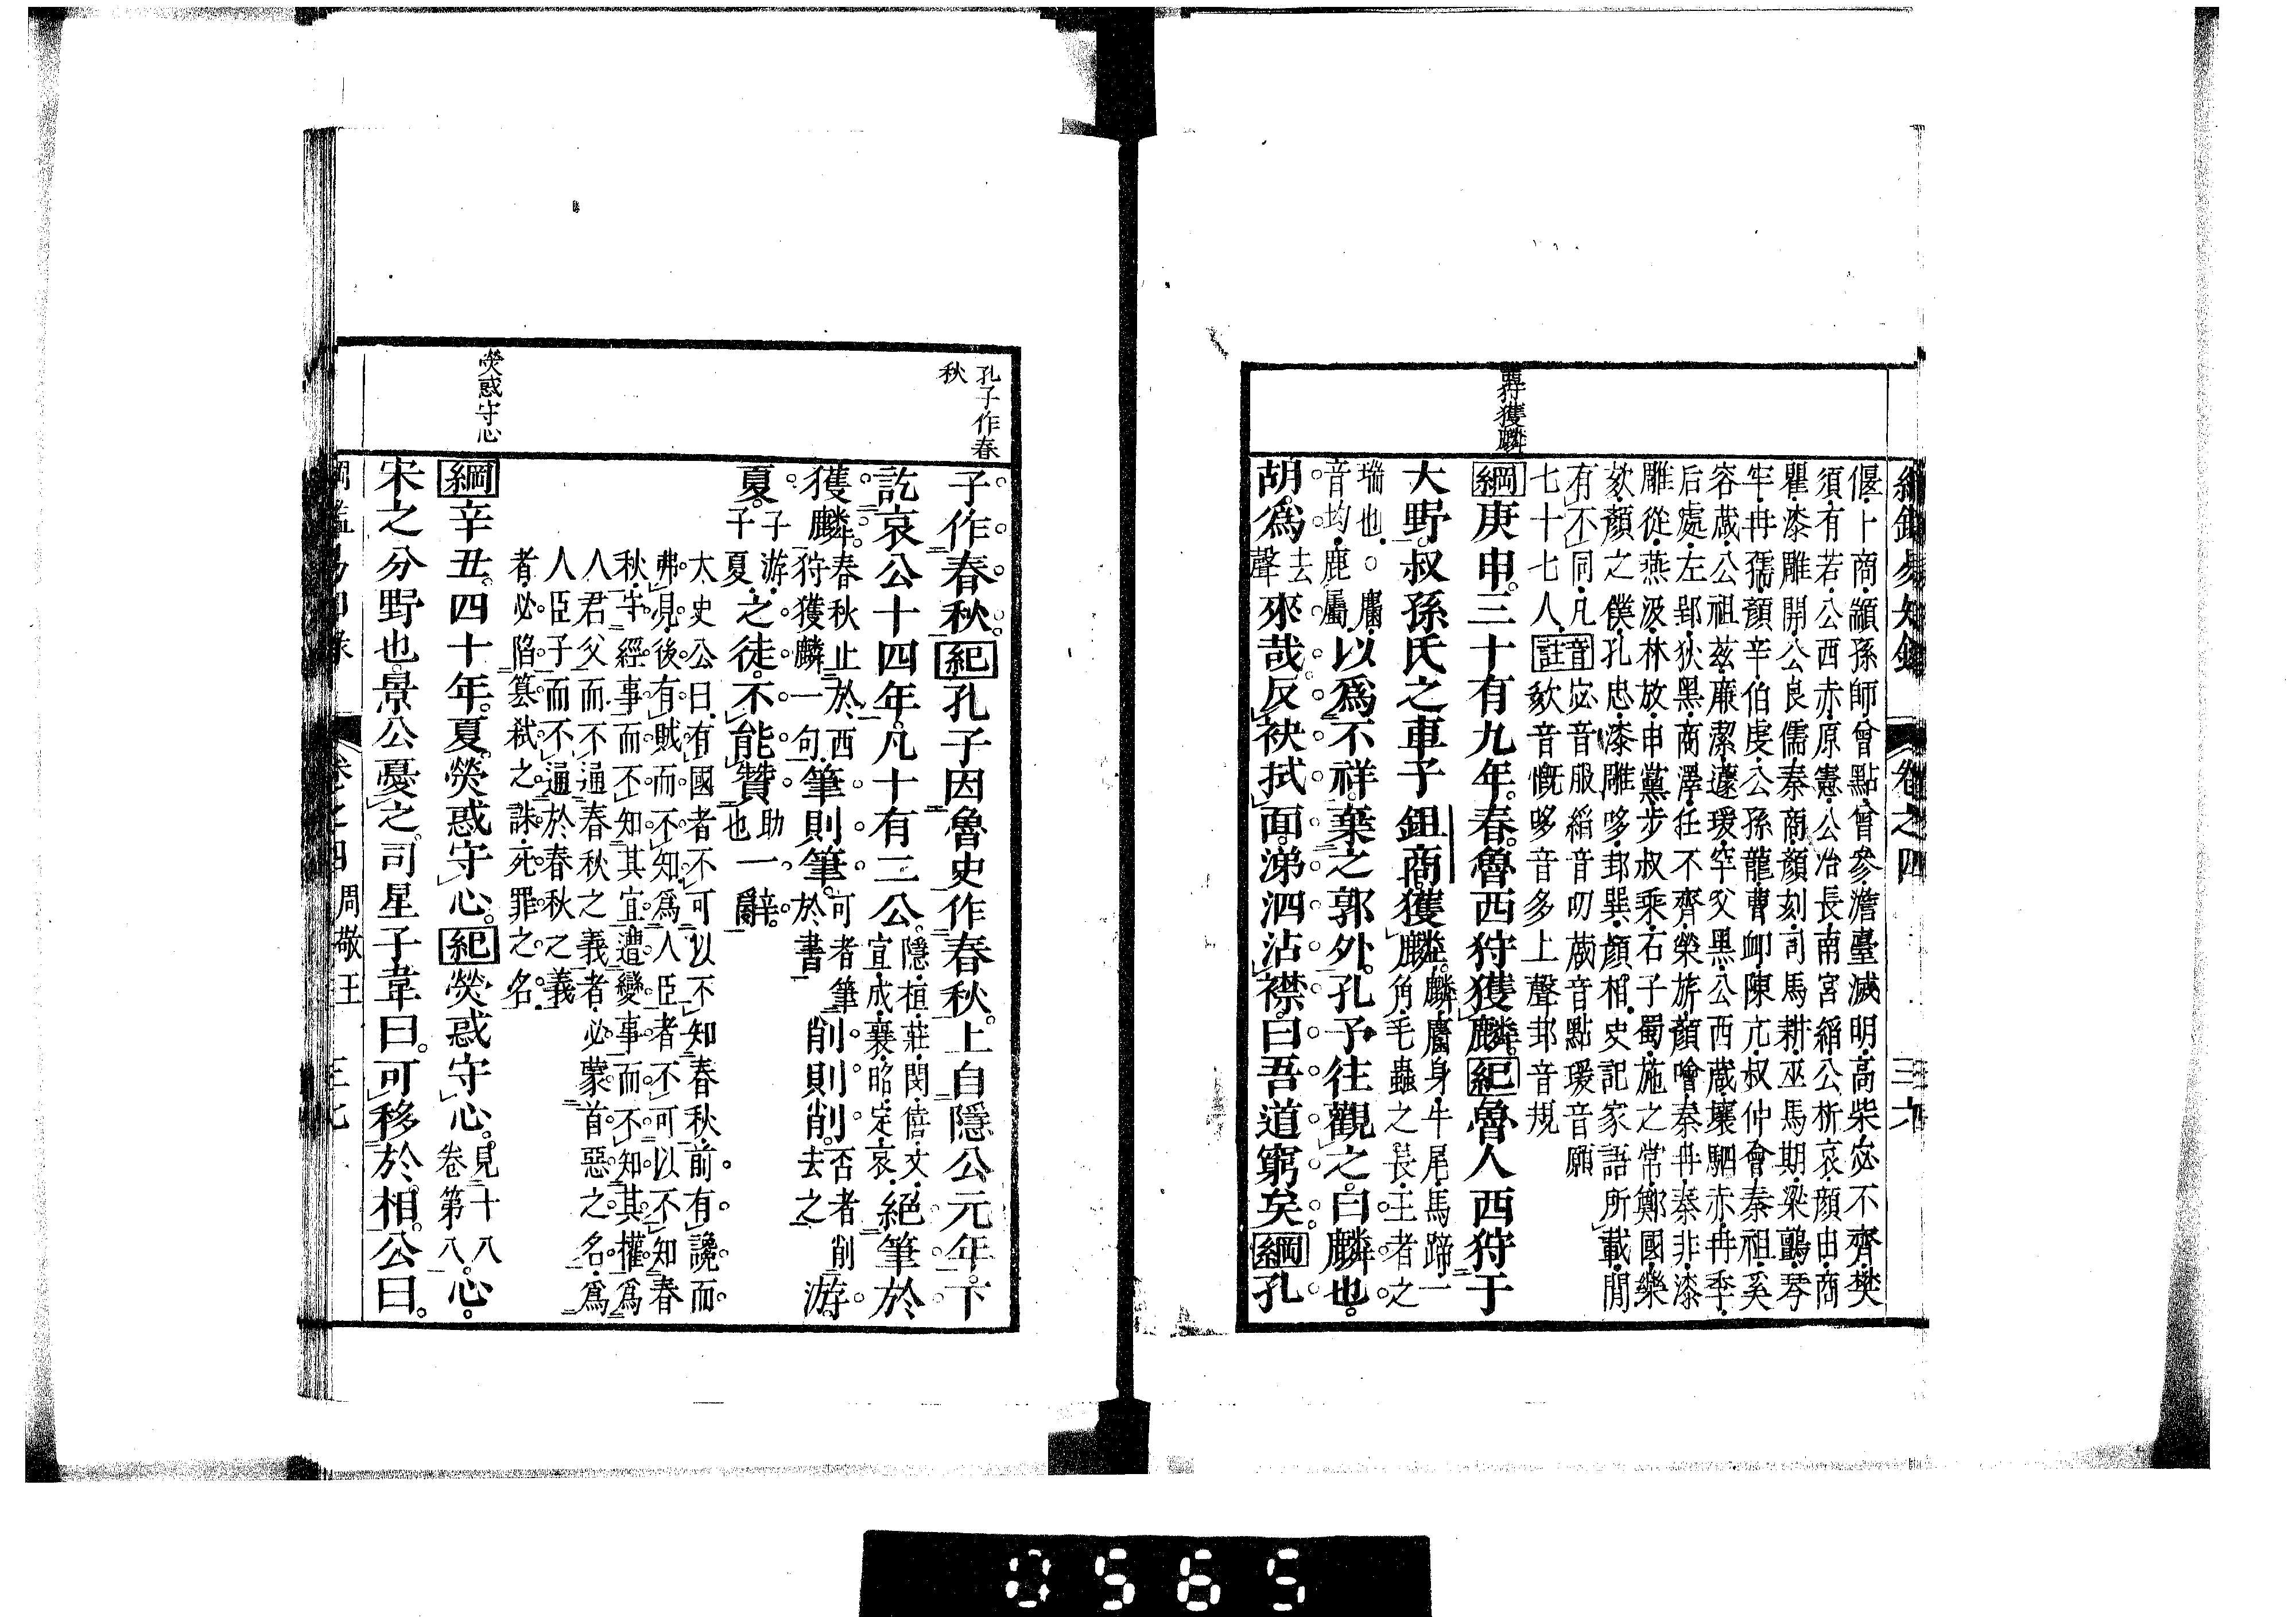 綱鑑易知錄 卷之四 三六
偃卜商顓孫師曾點曾參澹臺滅明高柴宓不齊樊
須有若公西赤原憲公冶長南宮縚公析哀顏由商
瞿漆雕開公良儒秦商顏刻司馬耕巫馬期梁鸇琴
牢冉孺顏辛伯虔公孫龍曹卹陳亢叔仲會秦祖奚
容蒧公祖茲廉潔蘧瑗罕父黑公西蒧壤駟赤冉季
后處左郢狄黑商澤任不齊榮旂顏噲秦冉秦非漆
雕從燕汲林放申黨步叔乘石子蜀施之常鄭國樂
欬顏之僕孔忠漆雕哆邽巽顏相史記家語所載閒
有不同凡音宓音服縚音叨蒧音點瑗音願
七十七人註欬音慨哆音多上聲邽音規
西狩獲麟
綱庚申三十有九年春魯西狩獲麟紀魯人西狩于
大野叔孫氏之車子鉏商獲麟麟麕身牛尾馬蹄一
角毛蟲之長王者之
瑞也○麕
音均鹿屬以爲不祥棄之郭外孔子往觀之曰麟也
胡爲去
聲來哉反袂拭面涕泗沾襟曰吾道窮矣綱孔
孔子作春
秋
子作春秋紀孔子因魯史作春秋上自隱公元年下
訖哀公十四年凡十有二公隱桓莊閔僖文
宣成襄昭定哀絕筆於
獲麟春秋止於西
狩獲麟一句筆則筆可者筆
於書削則削否者削
去之游
夏子游
子夏之徒不能贊助
也一辭
太史公曰有國者不可以不知春秋前有讒而
弗見後有賊而不知爲人臣者不可以不知春
秋守經事而不知其宜遭變事而不知其權爲
人君父而不通春秋之義者必蒙首惡之名爲
人臣子而不通於春秋之義
者必陷篡弒之誅死罪之名
熒惑守心
綱辛丑四十年夏熒惑守心紀熒惑守心見十八
卷第八心
宋之分野也景公憂之司星子韋曰可移於相公曰
卷之四 周敬王 三七
0565